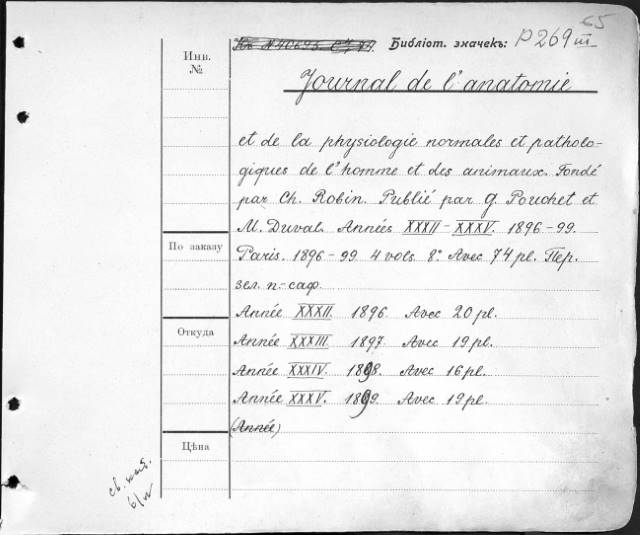 65
Библіот. значекъ: P 269 III
Инв.
№
Journal de l'anatomie
et de la physiologie normales et patholo-
giques de l'homme et des animaux. Fondé
par Ch. Robin. Publié par G. Pouchet et
M. Duval. Années XXXII-XXXV. 1896-99.
По заказу
Paris. 1896-99 4 vols. 8°. Avec 74 pl. Пер.
зел. п.-саф.
Année XXXII. 1896. Avec 20 pl.
Откуда
Année XXXIII. 1897. Avec 19 pl.
Année XXXIV. 1898. Avec 16 pl.
Année XXXV. 1899. Avec 19 pl.
(Année)
Цѣна